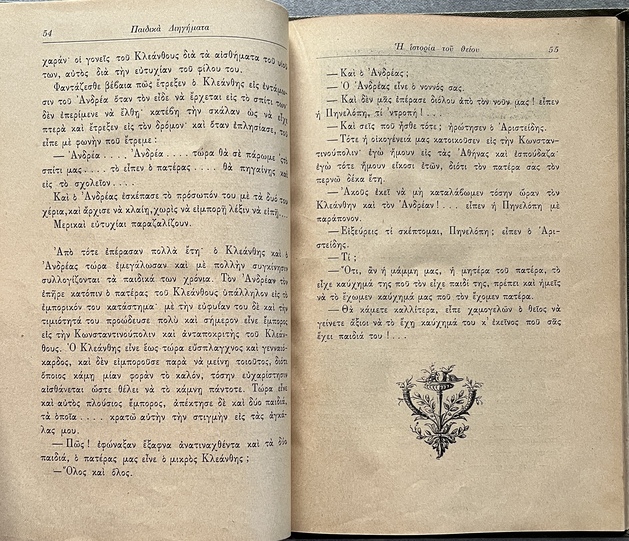 54
Παιδικὰ Διηγήματα
χαράν· οἱ γονεῖς τοῦ Κλεάνθους διὰ τὰ αἰσθήματα τοῦ υἱοῦ
των, αὐτὸς διὰ τὴν εὐτυχίαν τοῦ φίλου του.
Φαντάζεσθε βέβαια πῶς ἔτρεξεν ὁ Κλεάνθης εἰς ἐντάμω-
σιν τοῦ Ἀνδρέα ὅταν τὸν εἶδε νὰ ἔρχεται εἰς τὸ σπίτι των
δὲν ἐπερίμενε νὰ ἔλθῃ· κατέβη τὴν σκάλαν ὡς νὰ εἶχε
πτερὰ καὶ ἔτρεξεν εἰς τὸν δρόμον· καὶ ὅταν ἐπλησίασε, τοῦ
εἶπε μὲ φωνὴν ποῦ ἔτρεμε:
— Ἀνδρέα .... Ἀνδρέα .... τώρα θὰ σὲ πάρωμε 'στὸ
σπίτι μας .... τὸ εἶπεν ὁ πατέρας .... θὰ πηγαίνῃς καὶ
εἰς τὸ σχολεῖον ....
Καὶ ὁ Ἀνδρέας ἐσκέπασε τὸ πρόσωπόν του μὲ τὰ δυό του
χέρια, καὶ ἄρχισε νὰ κλαίῃ, χωρὶς νὰ εἰμπορῇ λέξιν νὰ εἰπῇ....
Μερικαὶ εὐτυχίαι παραζαλίζουν.
Ἀπὸ τότε ἐπέρασαν πολλὰ ἔτη· ὁ Κλεάνθης καὶ ὁ
Ἀνδρέας τώρα ἐμεγάλωσαν καὶ μὲ πολλὴν συγκίνησιν
συλλογίζονται τὰ παιδικά των χρόνια. Τὸν Ἀνδρέαν τὸν
ἐπῆρε κατόπιν ὁ πατέρας τοῦ Κλεάνθους ὑπάλληλον εἰς τὸ
ἐμπορικόν του κατάστημα· μὲ τὴν εὐφυΐαν του δὲ καὶ τὴν
τιμιότητά του προώδευσε πολὺ καὶ σήμερον εἶνε ἔμπορος
εἰς τὴν Κωνσταντινούπολιν καὶ ἀνταποκριτὴς τοῦ Κλεάν-
θους. Ὁ Κλεάνθης εἶνε ἕως τώρα εὔσπλαγχνος καὶ γενναιό-
καρδος, καὶ δὲν εἰμποροῦσε παρὰ νὰ μείνῃ τοιοῦτος, διότι
ὅποιος κάμῃ μίαν φορὰν τὸ καλόν, τόσην εὐχαρίστησιν
αἰσθάνεται ὥστε θέλει νὰ τὸ κάμνῃ πάντοτε. Τώρα εἶνε
καὶ αὐτὸς πλούσιος ἔμπορος, ἀπέκτησε δὲ καὶ δύο παιδιά,
τὰ ὁποῖα .... κρατῶ αὐτὴν τὴν στιγμὴν εἰς τὰς ἀγκά-
λας μου.
— Πῶς! ἐφώναξαν ἔξαφνα ἀνατιναχθέντα καὶ τὰ δύο
παιδιά, ὁ πατέρας μας εἶνε ὁ μικρὸς Κλεάνθης;
— Ὅλος καὶ ὅλος.
Ἡ ἱστορία τοῦ θείου
55
— Καὶ ὁ Ἀνδρέας;
— Ὁ Ἀνδρέας εἶνε ὁ νοννός σας.
— Καὶ δὲν μᾶς ἐπέρασε διόλου ἀπὸ τὸν νοῦν μας! εἶπεν
ἡ Πηνελόπη, τί 'ντροπή!...
— Καὶ σεῖς ποῦ ἦσθε τότε; ἠρώτησεν ὁ Ἀριστείδης.
— Τότε ἡ οἰκογένειά μας κατοικοῦσεν εἰς τὴν Κωνσταν-
τινούπολιν· ἐγὼ ἤμουν εἰς τὰς Ἀθήνας καὶ ἐσπούδαζα·
ἐγὼ τότε ἤμουν εἴκοσι ἐτῶν, διότι τὸν πατέρα σας τὸν
περνῶ δέκα ἔτη.
— Ἀκοῦς ἐκεῖ νὰ μὴ καταλάβωμεν τόσην ὥραν τὸν
Κλεάνθην καὶ τὸν Ἀνδρέαν!... εἶπεν ἡ Πηνελόπη μὲ
παράπονον.
— Εἰξεύρεις τί σκέπτομαι, Πηνελόπη; εἶπεν ὁ Ἀρι-
στείδης.
— Τί;
— Ὅτι, ἂν ἡ μάμμη μας, ἡ μητέρα τοῦ πατέρα, τὸ
εἶχε καύχημά της ποῦ τὸν εἶχε παιδί της, πρέπει καὶ ἡμεῖς
νὰ τὸ ἔχωμεν καύχημά μας ποῦ τὸν ἔχομεν πατέρα.
— Θὰ κάμετε καλλίτερα, εἶπε χαμογελῶν ὁ θεῖος νὰ
γείνετε ἄξιοι νὰ τὸ ἔχῃ καύχημά του κ' ἐκεῖνος ποῦ σᾶς
ἔχει παιδιά του!...